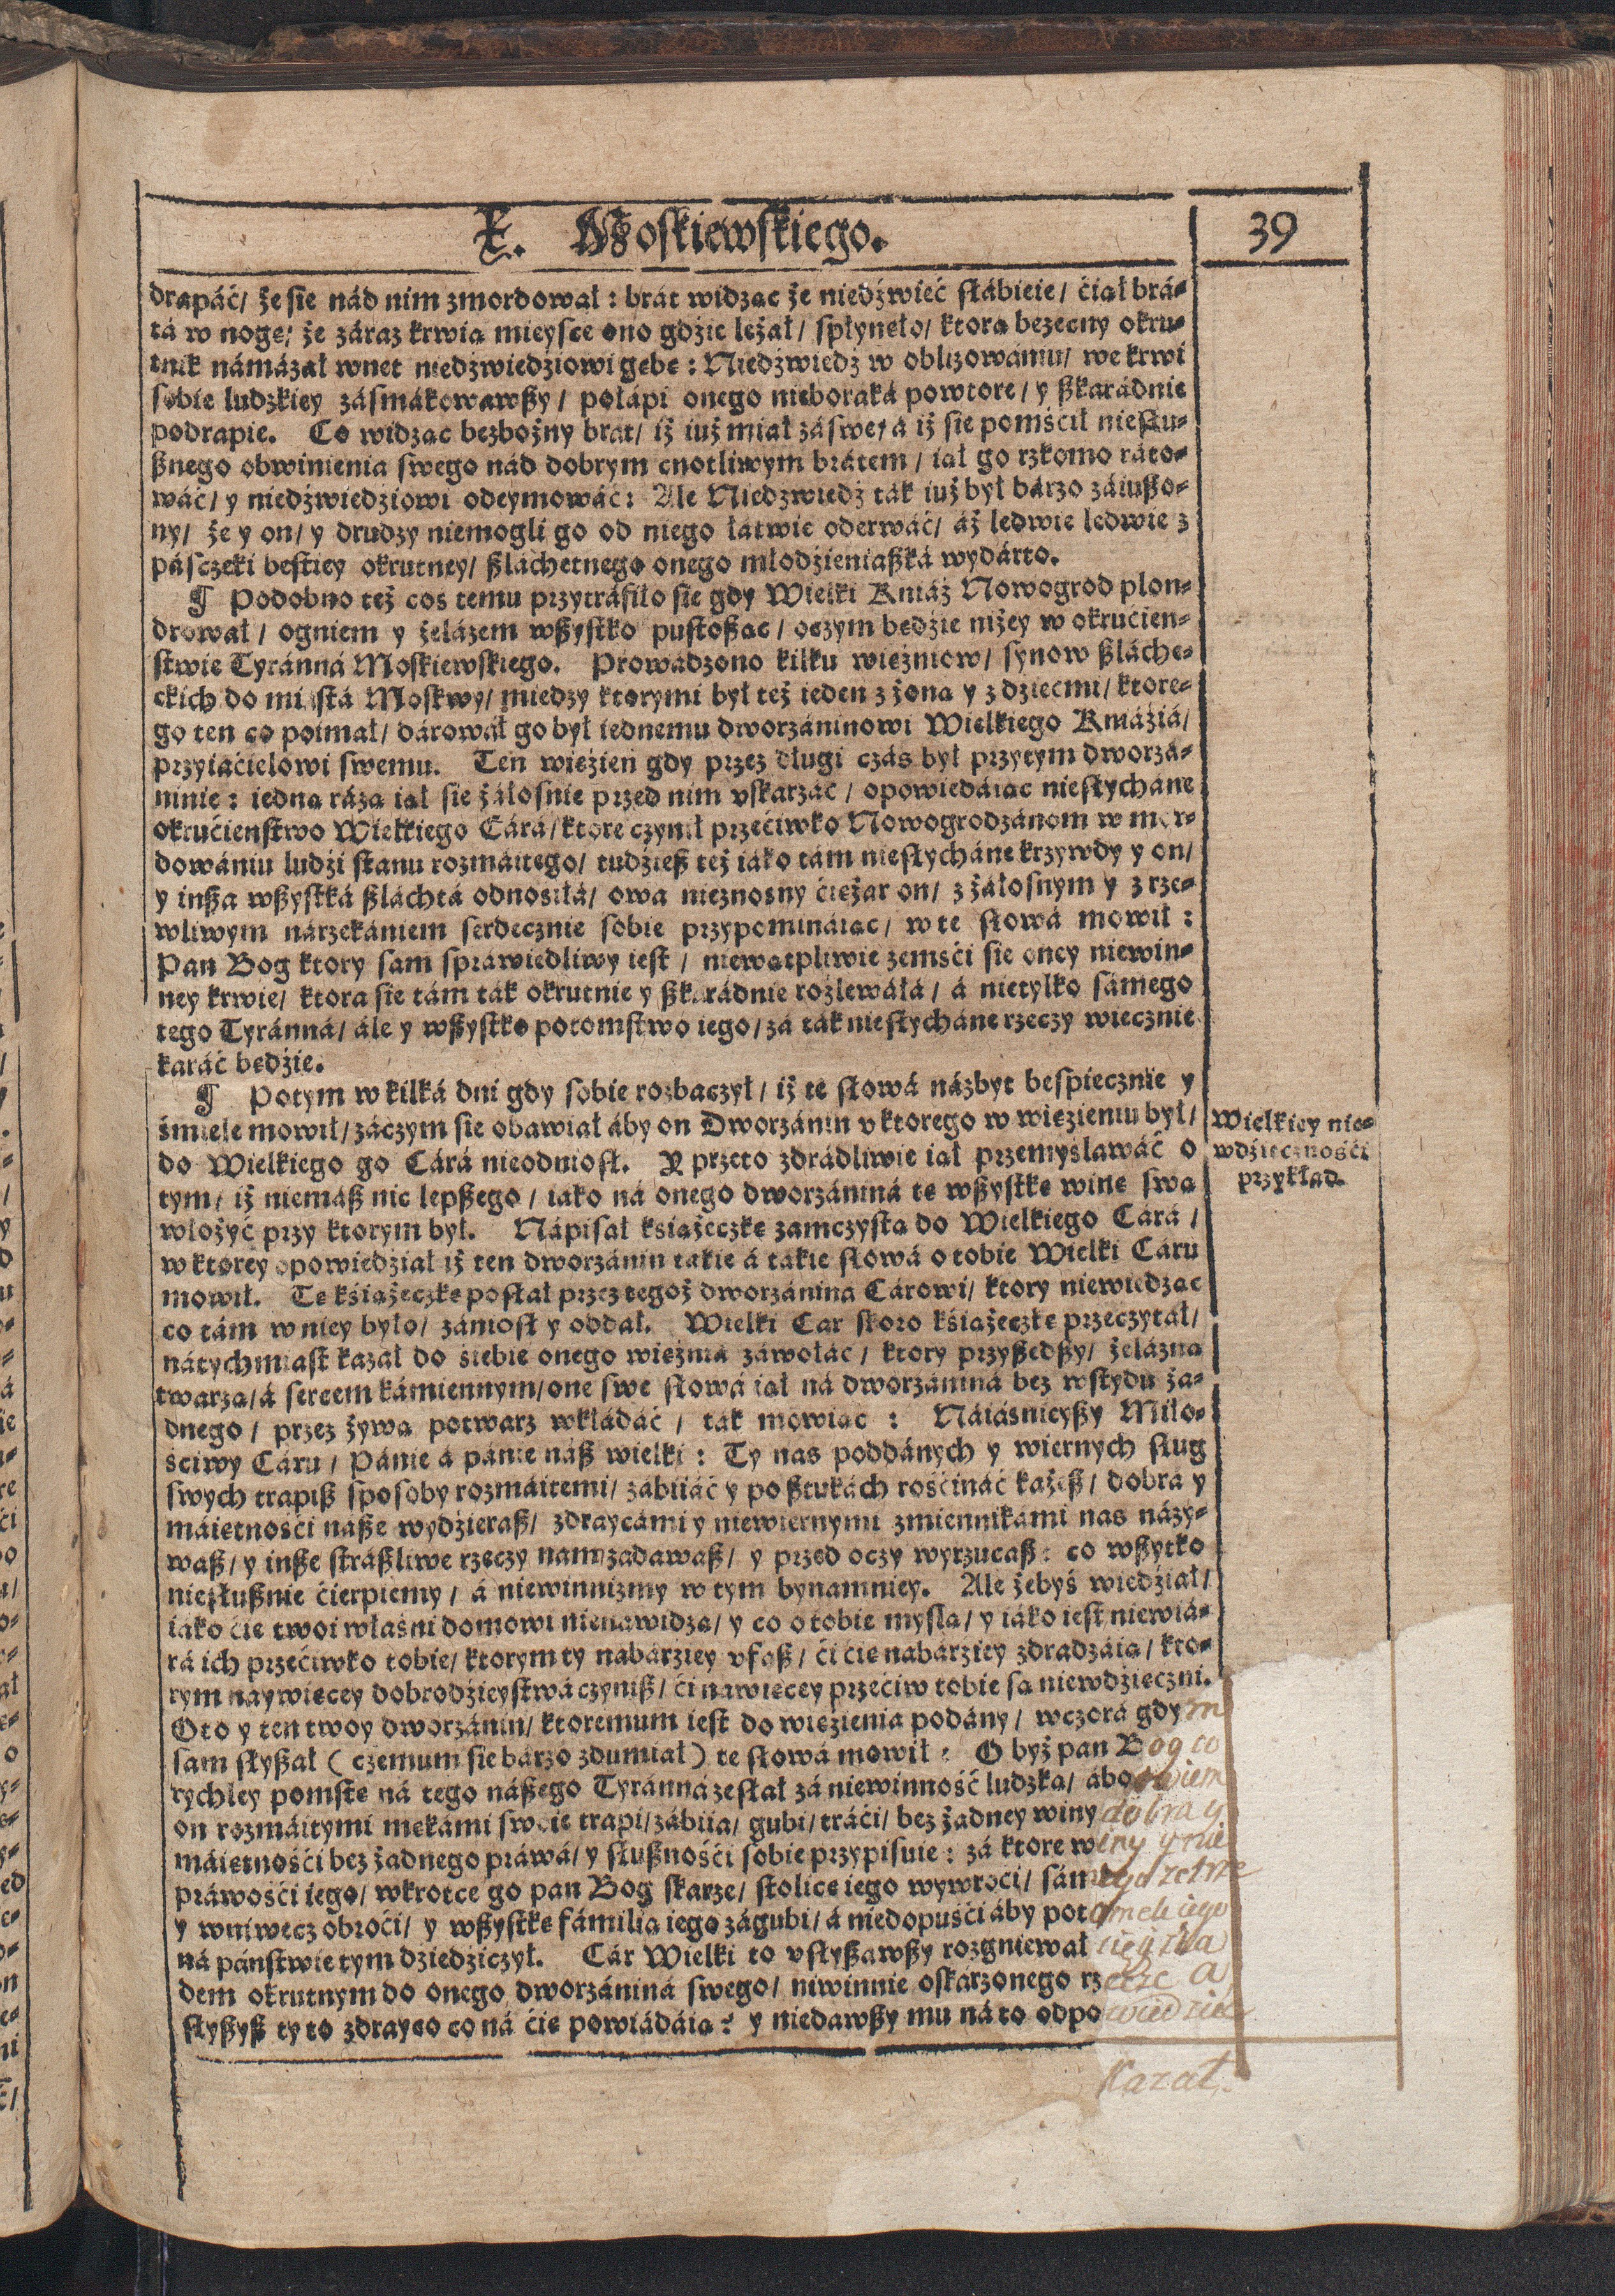 X. Moskiewskiego.
39
drapáć/ że sie nád nim zmordował: brát widząc że niedźwieć słábieie/ ćiął brá-
tá w nogę/ że záraz krwią mieysce ono gdzie leżał/ spłynęło/ ktorą bezecny okru-
tnik námázał wnet niedźwiedźiowi gębę: Niedźwiedź w oblizowániu/ we krwi
sobie ludzkiey zásmákowawszy/ połápi onego nieboraká powtore/ y szkarádnie
podrapie. Co widząc bezbożny brat/ iż iuż miał zá swe/ á iż sie pomśćił niesłu-
sznego obwinienia swego nád dobrym cnotliwym brátem/ iął go rzkomo ráto-
wáć/ y niedźwiedźiowi odeymowáć: Ale Niedzwiedź ták iuż był bárzo záiuszo-
ny/ że y on/ y drudzy niemogli go od niego łátwie oderwáć/ áż ledwie ledwie z
pásczeki bestiey okrutney/ szláchetnego onego młodźieniaszká wydárto.
¶ Podobno też cos temu przytráfiło sie gdy Wielki Kniáź Nowogrod plon-
drował/ ogniem y żelázem wszystko pustosząc/ oczym będźie niżey w okrućien-
stwie Tyránná Moskiewskiego. Prowadzono kilku więźniow/ synow szláche-
ckich do miástá Moskwy/ miedzy ktorymi był też ieden z żoną y z dziećmi/ ktore-
go ten co poimał/ dárował go był iednemu dworzáninowi Wielkiego Kniáźiá/
przyiaćielowi swemu. Ten więźień gdy przez długi czás był przytym dworzá-
ninie: iedną rázą iął sie żáłosnie przed nim vskarzáć/ opowiedáiąc niesłycháne
okrućieństwo Wielkiego Cárá/ ktore czynił przećiwko Nowogrodzánom w mor-
dowániu ludźi stanu rozmáitego/ tudźiesz też iáko tám niesłycháne krzywdy y on/
y insza wszystká szláchtá odnosiłá/ owa nieznosny ćiężar on/ z żáłosnym y z rze-
wliwym nárzekániem serdecznie sobie przypomináiąc/ w te słowá mowił:
Pan Bog ktory sam spráwiedliwy iest/ niewątpliwie zemśći sie oney niewin-
ney krwie/ ktora sie tám ták okrutnie y szkarádnie rozlewáłá/ á nietylko sámego
tego Tyránná/ ále y wszystko potomstwo iego/ zá ták niesłycháne rzeczy wiecznie
karáć będzie.
¶ Potym w kilká dni gdy sobie rozbaczył/ iż te słowá názbyt bespiecznie y
śmiele mowił/ záczym sie obawiał áby on Dworzánin v ktorego w więzieniu był/
do Wielkiego go Cárá nieodniosł. Y przeto zdrádliwie iął przemyslawáć o
tym/ iż niemász nic lepszego/ iáko ná onego dworzániná tę wszystkę winę swą
włożyć przy ktorym był. Nápisał książeczkę zamczystą do Wielkiego Cárá/
w ktorey opowiedźiał iż ten dworzánin takie á takie słowá o tobie Wielki Cáru
mowił. Tę kśiążeczkę posłał przez tegoż dworzánina Cárowi/ ktory niewiedząc
co tám w niey było/ zániosł y oddał. Wielki Car skoro kśiążeczkę przeczytał/
nátychmiast kazał do śiebie onego więźniá záwołáć/ ktory przyszedszy/ żelázną
twarzą/ á sercem kámiennym/ one swe słowá iął ná dworzániná bez wstydu ża-
dnego/ przez żywą potwarz wkłádáć/ ták mowiąc: Náiásnieyszy Miło-
sciwy Cáru/ Pánie á pánie nász wielki: Ty nas poddánych y wiernych sług
swych trapisz sposoby rozmáitemi/ zábiiáć y po sztukách rośćináć każesz/ dobrá y
máiętnośći násze wydźierasz/ zdraycámi y niewiernymi zmiennikámi nas názy-
wasz/ y insze strászliwe rzeczy nam zadawasz/ y przed oczy wyrzucasz: co wszytko
niesłusznie ćierpiemy/ á niewinnizmy w tym bynamniey. Ale żebyś wiedźiał/
iáko ćie twoi właśni domowi nienawidzą/ y co o tobie myslą/ y iáko iest niewiá-
rá ich przećiwko tobie/ ktorym ty nabárźiey vfasz/ ći ćie nabárźiey zdradzáią/ kto-
rym naywięcey dobrodźieystwá czynisz/ ći nawięcey przećiw tobie są niewdźięczni.
Oto y ten twoy dworzánin/ ktoremum iest do więźienia podány/ wczorá gdym
sam słyszał (czemum sie bárzo zdumiał) te słowá mowił: O byż pan Bog co
rychley pomstę ná tego nászego Tyránná zesłał zá niewinność ludzką/ ábowiem
on rozmáitymi mękámi swoie trapi/ zábiia/ gubi/ tráći/ bez żadney winy dobra y
máiętnośći bez żadnego práwá/ y słusznośći sobie przypisuie: zá ktore winy y nie
práwośći iego/ wkrotce go pan Bog skarze/ stolicę iego wywroći/ sám
y wniwecz obroći/ y wszystkę fámilią iego zágubi/ á niedopuśći áby potomek iego
ná páństwie tym dziedźiczył. Cár Wielki to vsłyszawszy rozgniewał się y
dem okrutnym do onego dworzániná swego/ niwinnie oskárzonego rzecze a
słyszysz ty to zdrayco co ná ćię powiádáią? y niedawszy mu ná to odpowiedziec
Kazał.
Wielkiey nie-
wdźięcznośći
przykład.